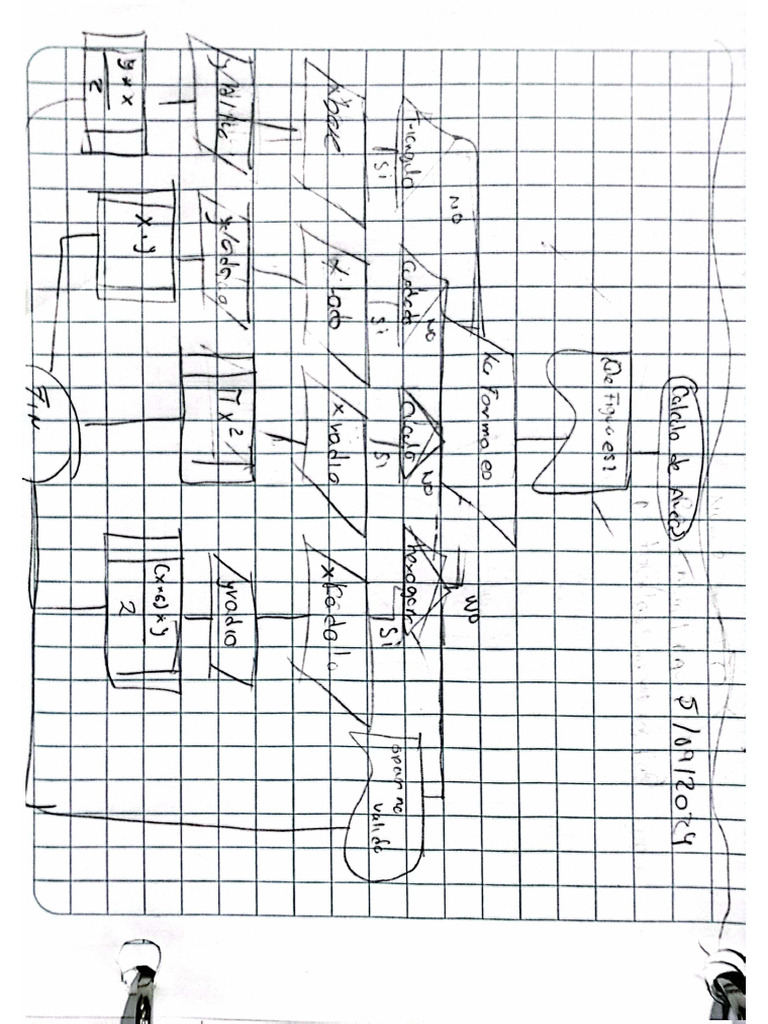 5/09/2024
Calculo de Areas
Que Figura es?
La forma es
NO
NO
NO
NO
Triangulo
Cuadrado
Circulo
hexagono
Si
Si
Si
Si
x base
x lado
x radio
x lado
y Altura
y lado
y radio
y * x
2
x . y
π x²
(x*6)*y
2
opcion no
valida
Fin